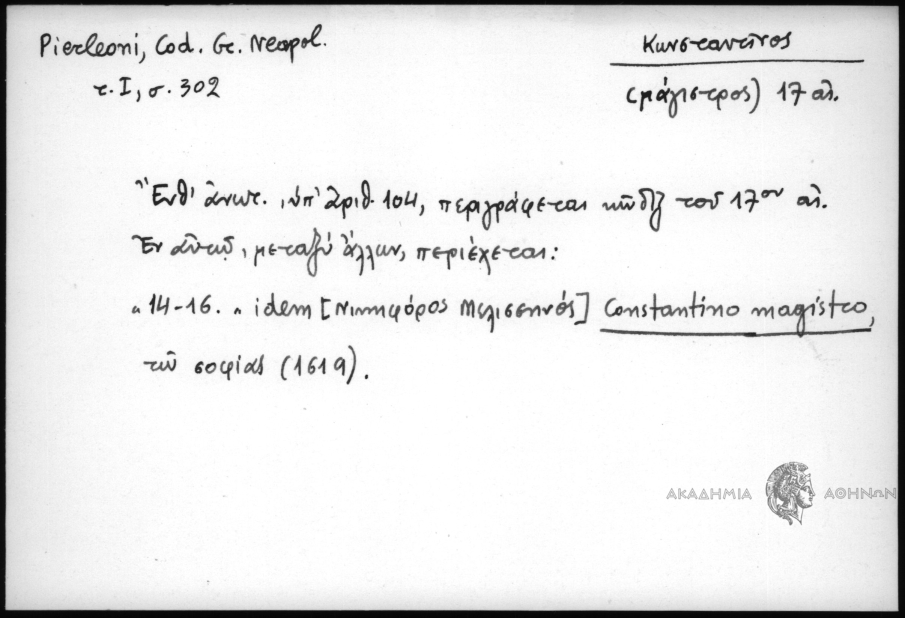 Pierleoni, Cod. Gr. Neapol.
τ. I, σ. 302
Κωνσταντῖνος
(μάγιστρος) 17 αἰ.
Ἔνθ' ἀνωτ., ὑπ' ἀριθ. 104, περιγράφεται κῶδιξ τοῦ 17ου αἰ.
Ἐν αὐτῷ, μεταξὺ ἄλλων, περιέχεται:
" 14-16. " idem [Νικηφόρος Μελισσηνός] Constantino magistro,
τῶ σοφίας (1619).
ΑΚΑΔΗΜΙΑ ΑΘΗΝΩΝ